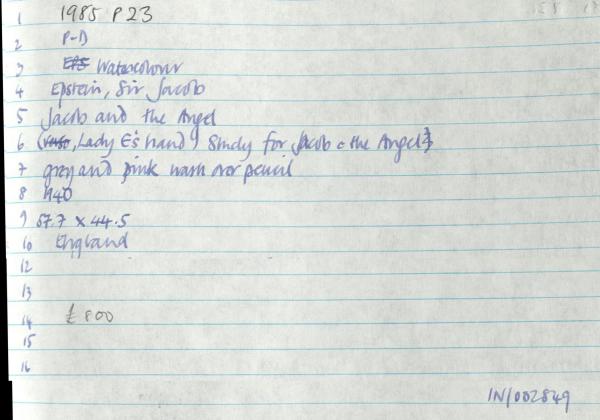 1 1985 P 23
2 P-D
3 EPS Watercolour
4 Epstein, Sir Jacob
5 Jacob and the Angel
6 (verso, Lady E's hand) Study for Jacob & the Angel
7 grey and pink wash over pencil
8 1940
9 57.7 x 44.5
10 England
12
13
14 £800
15
16
IN/002849